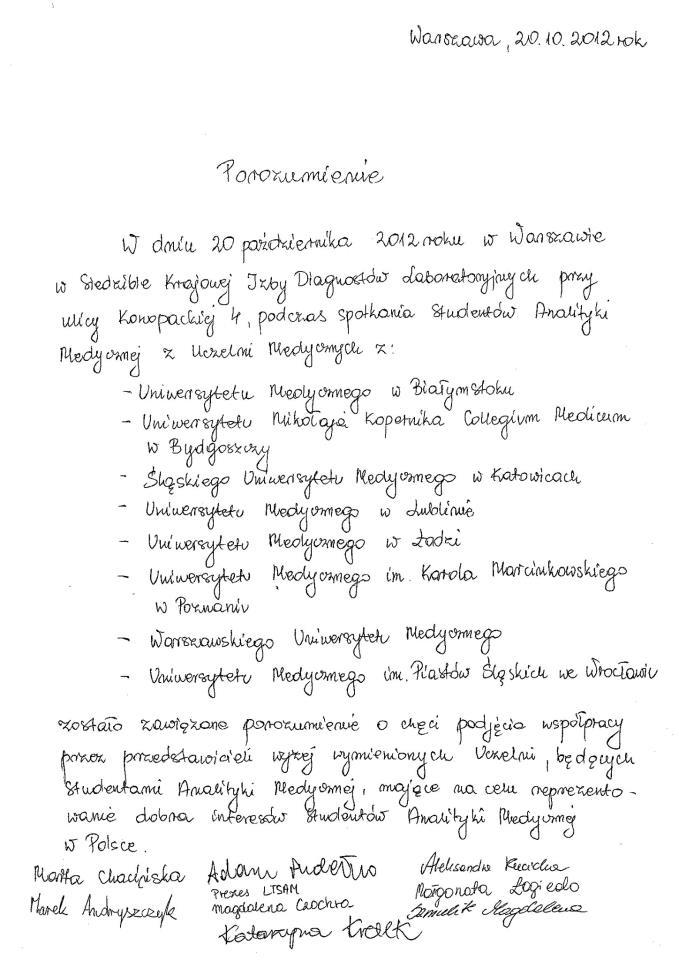 Warszawa, 20.10.2012 rok
Porozumienie
W dniu 20 października 2012 roku w Warszawie
w Siedzibie Krajowej Izby Diagnostów Laboratoryjnych przy
ulicy Konopackiej 4, podczas spotkania studentów Analityki
Medycznej z Uczelni Medycznych z:
- Uniwersytetu Medycznego w Białymstoku
- Uniwersytetu Mikołaja Kopernika Collegium Medicum
w Bydgoszczy
- Śląskiego Uniwersytetu Medycznego w Katowicach
- Uniwersytetu Medycznego w Lublinie
- Uniwersytetu Medycznego w Łodzi
- Uniwersytetu Medycznego im. Karola Marcinkowskiego
w Poznaniu
- Warszawskiego Uniwersytetu Medycznego
- Uniwersytetu Medycznego im. Piastów Śląskich we Wrocławiu
zostało zawiązane porozumienie o chęci podjęcia współpracy
przez przedstawicieli wyżej wymienionych Uczelni, będących
studentami Analityki Medycznej, mające na celu reprezento-
wanie dobra interesów studentów Analityki Medycznej
w Polsce.
Marta Adam Aleksandra
Prezes LTSAM Małgorzata Łagiedo
Marek Andryszczyk Magdalena Czochra Magdalena
Katarzyna